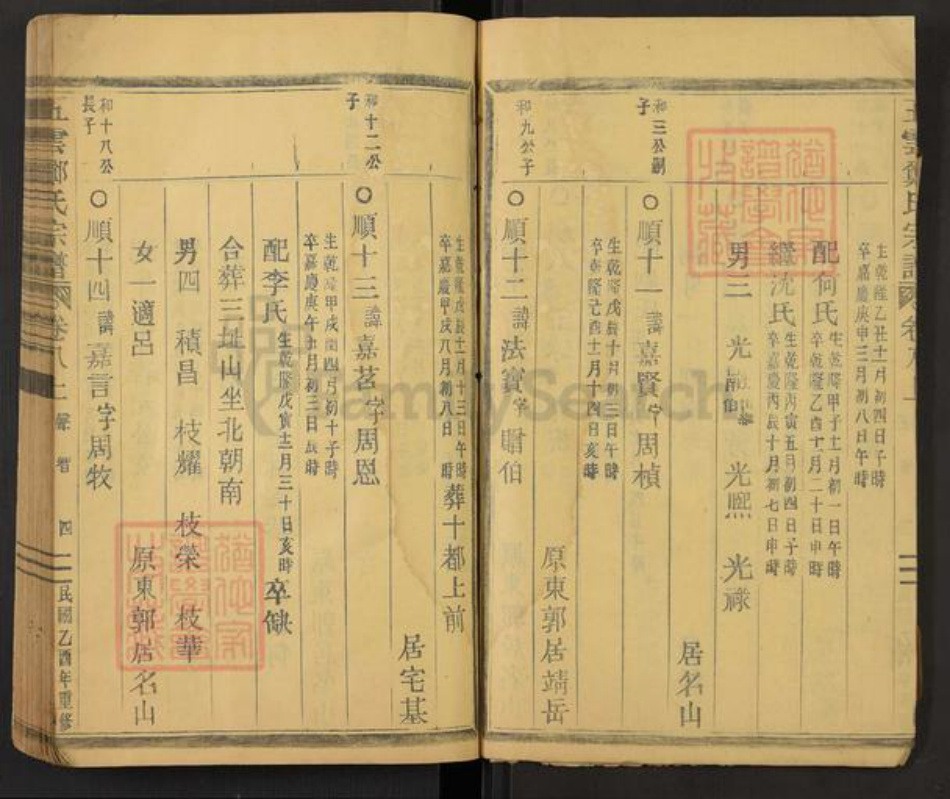 生乾隆乙丑十二月初四日子時
卒嘉慶庚申三月初八日午時
配何氏
生乾隆甲子十一月初一日午時
卒乾隆乙酉十月二十日申時
繼沈氏
生乾隆丙寅五月初四日子時
卒嘉慶丙辰十月初七日申時
男三 光 光熙 光祿
居名山
和三公嗣子
○順十一諱嘉賢字周楨
生乾隆戊辰十月初三日午時
卒乾隆己酉十一月十四日亥時
原東郭居靖岳
和九公子
○順十二諱法寶字贈伯
生乾隆戊辰十二月十三日午時
卒嘉慶甲戌八月初八日 時
葬十都上前
居宅基
和十二公子
○順十三諱嘉茗字周恩
生乾隆甲戌閏四月初十子時
卒嘉慶庚午 月初三日辰時
配李氏
生乾隆戊寅十二月三十日亥時
卒缺
合葬三址山坐北朝南
男四 積昌 枝耀 枝榮 枝華
女一適呂
原東郭居名山
和十八公長子
○順十四諱嘉言字周牧
五雲鄭氏宗譜 卷八上 四 民國乙酉年重修
FamilySearch